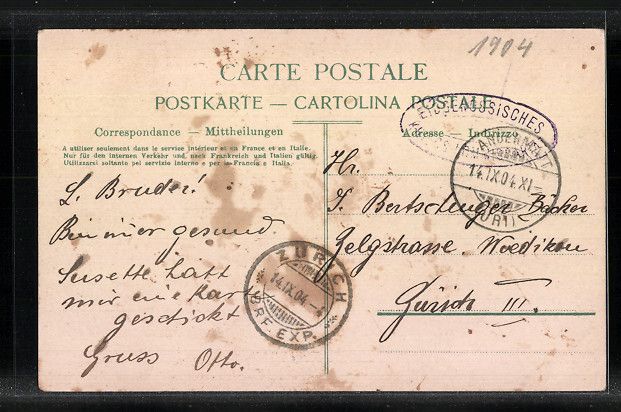 1904
CARTE POSTALE
POSTKARTE — CARTOLINA POSTALE
Correspondance — Mittheilungen
Adresse — Indirizzo
A utiliser seulement dans le service intérieur et en France et en Italie.
Nur für den internen Verkehr und nach Frankreich und Italien gültig.
Utilizzarsi soltanto pel servizio interno e per la Francia e Italia.
EIDGENÖSSISCHES
ANDERMATT
14.IX.04.XI–
(URI)
L. Bruder!
Bin immer gesund.
Susette hatt
mir eine Kart
geschickt
Gruss Otto.
ZÜRICH
14.IX.04
BRF. EXP.
Hr.
Bertschinger Bäcker
Zelgstrasse, Wiedikon
Zürich III.